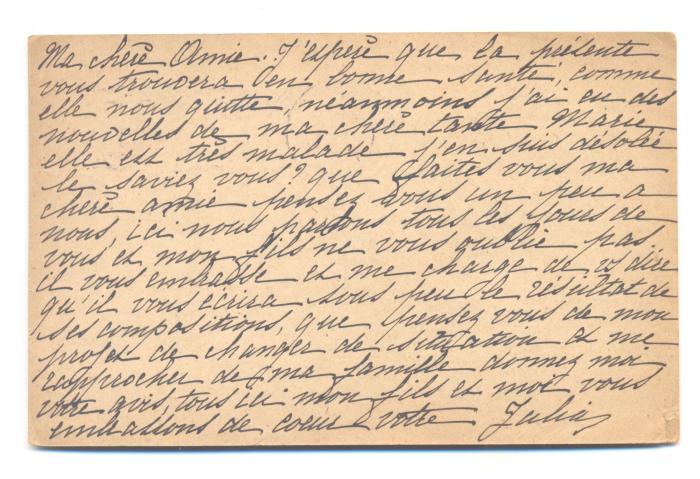 Ma chère Amie. J'espère que la présente
vous trouvera en bonne santé, comme
elle nous quitte, néanmoins j'ai eu des
nouvelles de ma chère tante Marie
elle est très malade j'en suis désolée
le saviez vous? que faites vous ma
chère amie pensez vous un peu a
nous, ici nous parlons tous les jours de
vous et mon fils ne vous oublie pas
il vous embrasse et me charge de vs dire
qu'il vous ecrira sous peu le résultat de
ses compositions, que pensez vous de mon
projet de changer de situation et me
rapprocher de ma famille donnez moi
votre avis, tous ici mon fils et moi vous
embrassons de coeur votre Julia